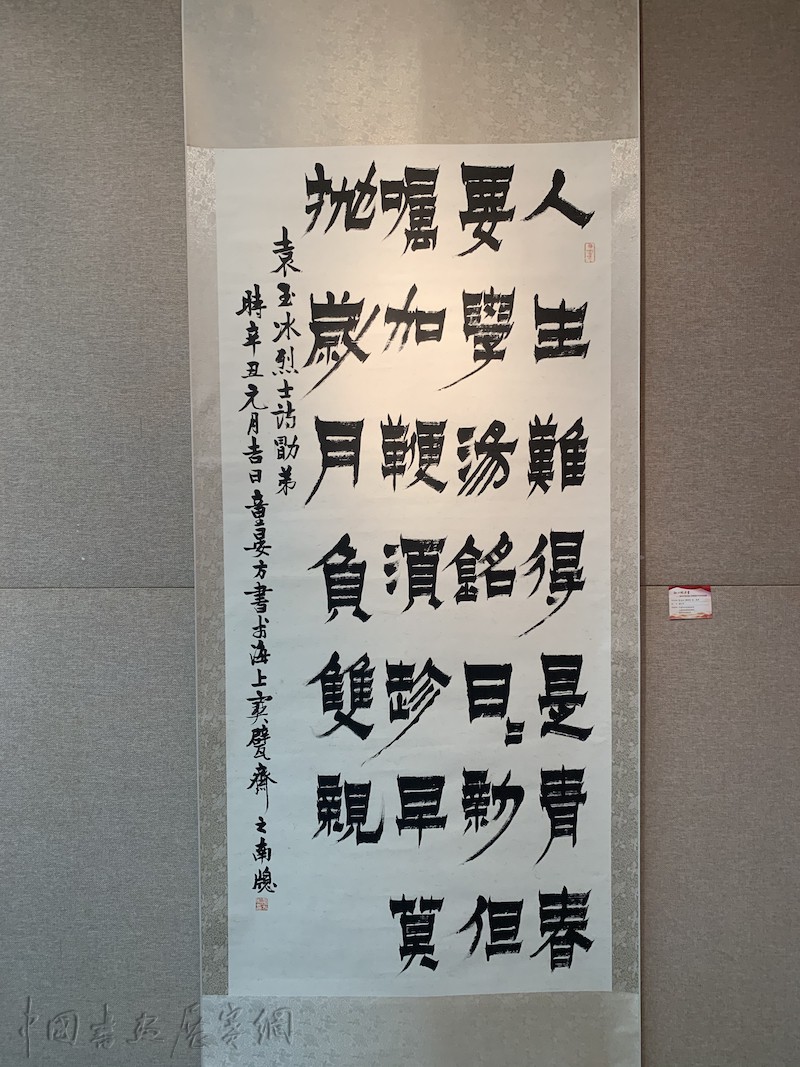 人生難得是青春
要學湯銘日〻新但
囑加鞭須趁早莫
抛歲月負雙親
袁玉冰烈士詩勖弟
時辛丑元月吉日童晏方書于海上寶甓齋之南牕
中國書画展賽網